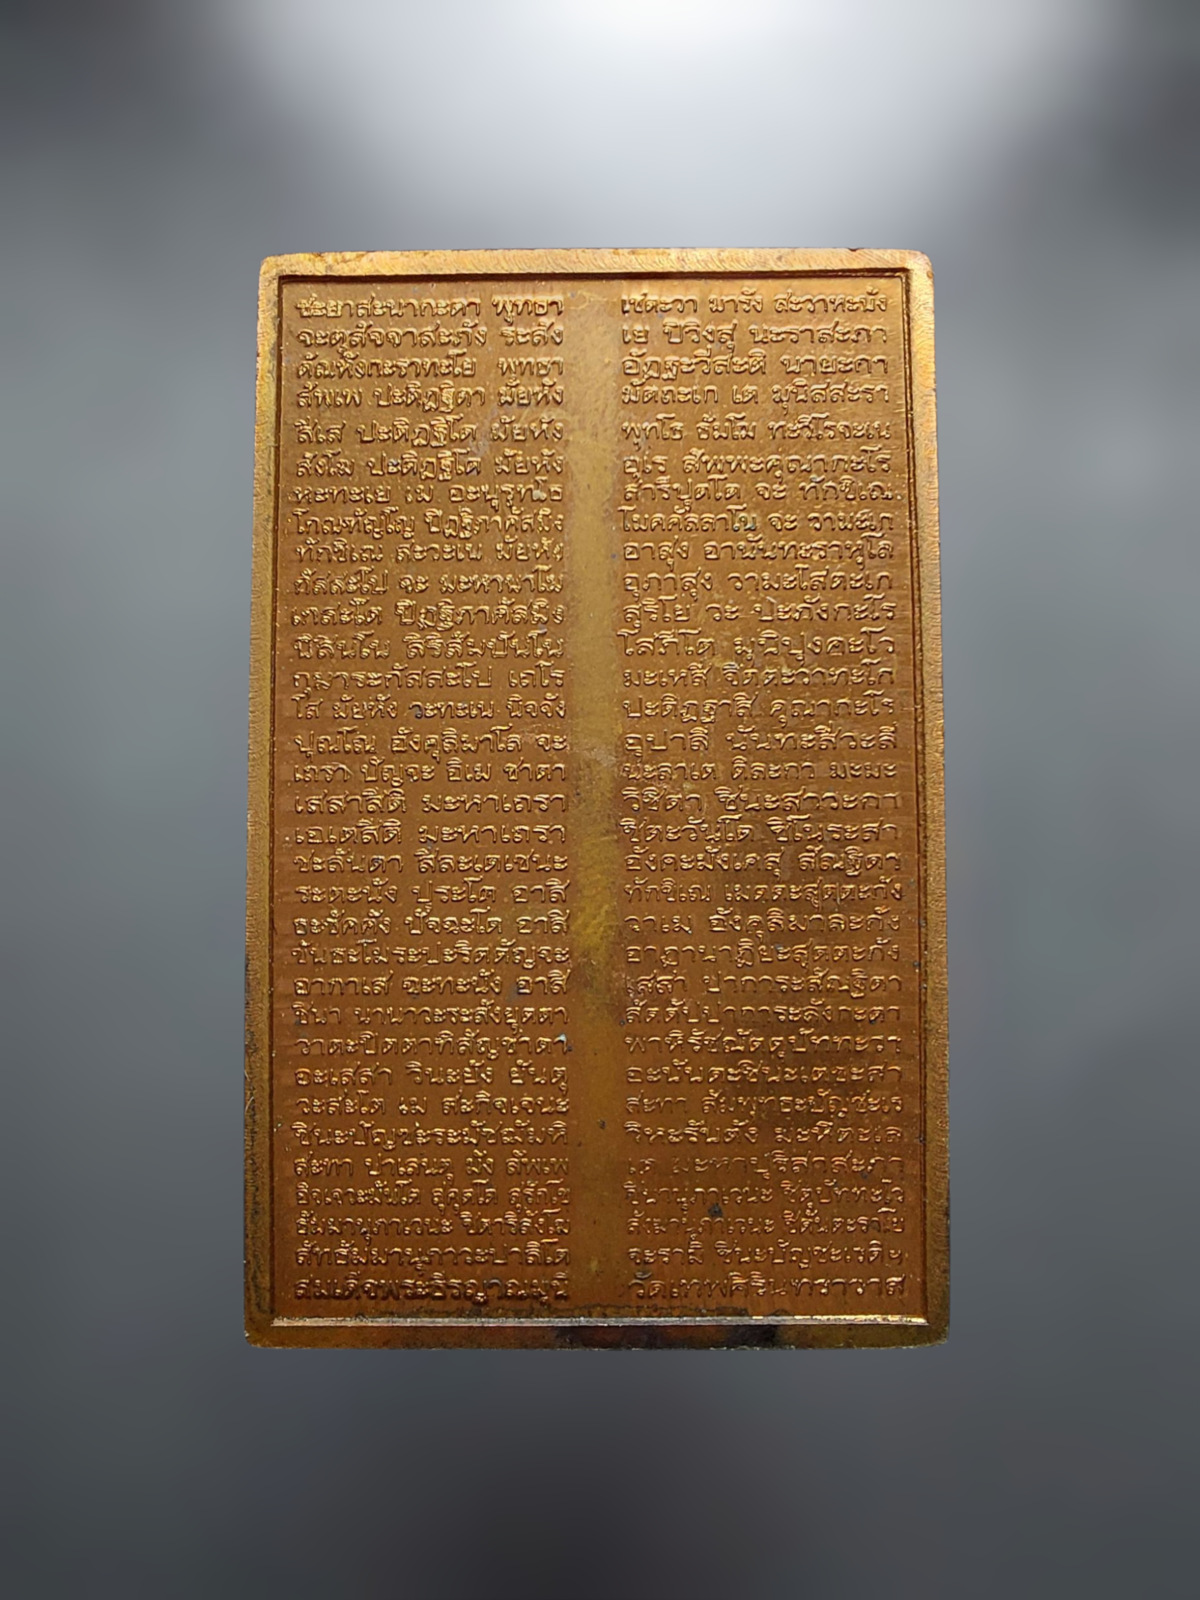 ชะยาสะนากะตา พุทธา เชตะวา มารัง สะวาหะนัง
จะตุสัจจาสะภัง ระสัง เย ปิวิงสุ นะราสะภา
ตัณหังกะราทะโย พุทธา อัฏฐะวีสะติ นายะกา
สัพเพ ปะติฏฐิตา มัยหัง มัตถะเก เต มุนิสสะรา
สีเส ปะติฏฐิโต มัยหัง พุทโธ ธัมโม ทะวิโรจะเน
สังโฆ ปะติฏฐิโต มัยหัง อุเร สัพพะคุณากะโร
หะทะเย เม อะนุรุทโธ สารีปุตโต จะ ทักขิเณ
โกณฑัญโญ ปิฏฐิภาคัสมิง โมคคัลลาโน จะ วามะเก
ทักขิเณ สะวะเน มัยหัง อาสุง อานันทะราหุโล
กัสสะโป จะ มะหานาโม อุภาสุง วามะโสตะเก
เกสะโต ปิฏฐิภาคัสมิง สุริโย วะ ปะภังกะโร
นิสินโน สิริสัมปันโน โสภิโต มุนิปุงคะโว
กุมาระกัสสะโป เถโร มะเหสี จิตตะวาทะโก
โส มัยหัง วะทะเน นิจจัง ปะติฏฐาสิ คุณากะโร
ปุณโณ อังคุลิมาโล จะ อุปาลี นันทะสีวะลี
เถรา ปัญจะ อิเม ชาตา นะลาเต ติละกา มะมะ
เสสาสีติ มะหาเถรา วิชิตา ชินะสาวะกา
เอเตสีติ มะหาเถรา ชิตะวันโต ชิโนระสา
ชะลันตา สีละเตเชนะ อังคะมังเคสุ สัณฐิตา
ระตะนัง ปุระโต อาสิ ทักขิเณ เมตตะสุตตะกัง
ธะชัคคัง ปัจฉะโต อาสิ วาเม อังคุลิมาละกัง
ขันธะโมระปะริตตัญจะ อาฏานาฏิยะสุตตะกัง
อากาเส ฉะทะนัง อาสิ เสสา ปาการะสัณฐิตา
ชินา นานาวะระสังยุตตา สัตตัปปาการะลังกะตา
วาตะปิตตาทิสัญชาตา พาหิรัชฌัตตุปัททะวา
อะเสสา วินะยัง ยันตุ อะนันตะชินะเตชะสา
วะสะโต เม สะกิจเจนะ สะทา สัมพุทธะปัญชะเร
ชินะปัญชะระมัชฌัมหิ วิหะรันตัง มะหีตะเล
สะทา ปาเลนตุ มัง สัพเพ เต มะหาปุริสาสะภา
อิจเจวะมันโต สุคุตโต สุรักโข ชินานุภาเวนะ ชิตุปัททะโว
ธัมมานุภาเวนะ ชิตาริสังโฆ สังฆานุภาเวนะ ชิตันตะราโย
สัทธัมมานุภาวะปาลิโต จะรามิ ชินะปัญชะเรติฯ
สมเด็จพระธีรญาณมุนี วัดเทพศิรินทราวาส